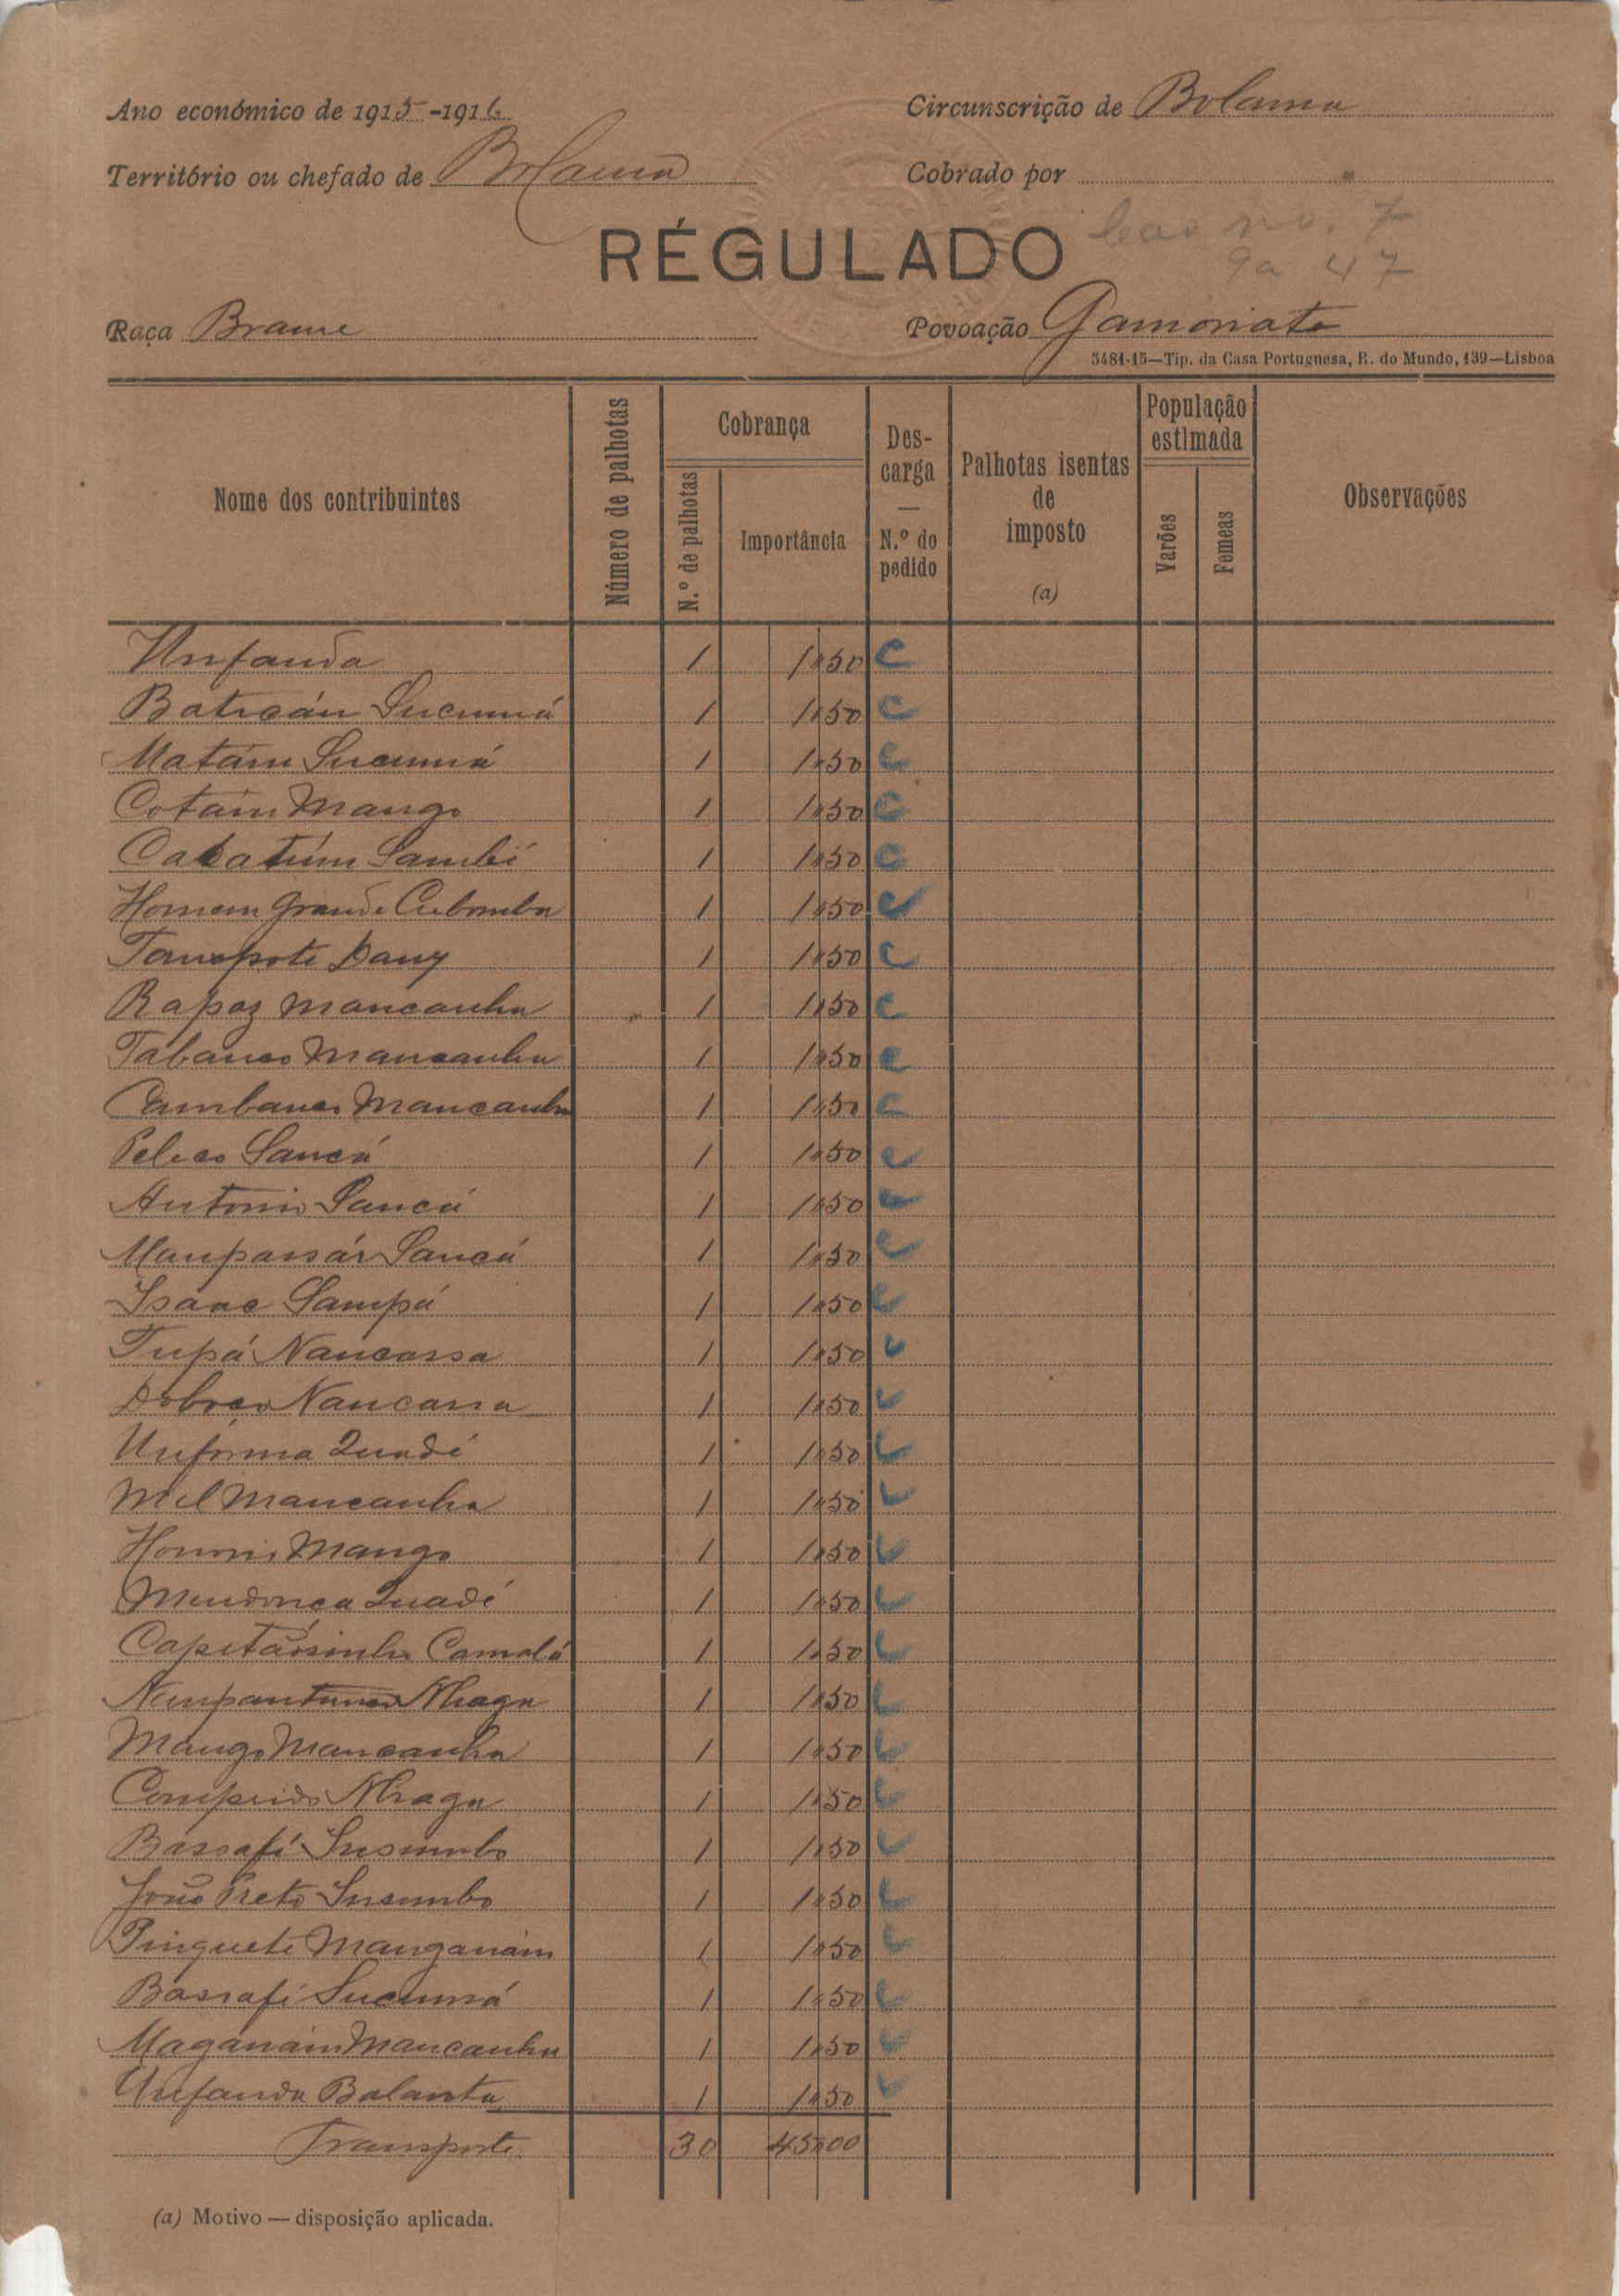 Ano económico de 1915-1916
Circunscrição de Bolama
Território ou chefado de Bolama
Cobrado por
RÉGULADO
no. 7
9a 47
Raça Brame
Povoação Gamoriate
5481-15—Tip. da Casa Portuguesa, R. do Mundo, 139—Lisboa
Nome dos contribuintes
Número de palhotas
Cobrança
N.º de palhotas
Importância
Descarga — N.º do pedido
Palhotas isentas de imposto (a)
População estimada
Varões
Femeas
Observações
Unfanda 1 1$50 C
Baticán Sucumá 1 1$50 C
Matám Sucumá 1 1$50 C
Cotám Mango 1 1$50 C
Cabatúm Sambi 1 1$50 C
Homem Grande Cubomba 1 1$50 C
Dany 1 1$50 C
Rapaz Mancanha 1 1$50 C
Tabanco Mancanha 1 1$50 C
Cambanco Mancanha 1 1$50 C
Pelico Sancá 1 1$50 C
Antonio Sancá 1 1$50 C
Maupassár Sancá 1 1$50 C
Isaac Sampá 1 1$50 C
Tupá Nancassa 1 1$50 C
Nancassa 1 1$50 C
Unforma Quadé 1 1$50 C
Mil Mancanha 1 1$50 C
Mango 1 1$50 C
Mendonca Quadé 1 1$50 C
Capitãosinho Camalá 1 1$50 C
Nhaga 1 1$50 C
Mango Mancanha 1 1$50 C
Comprido Nhaga 1 1$50 C
Bassafi Susumbo 1 1$50 C
João Preto Susumbo 1 1$50 C
Pinguete Manganám 1 1$50 C
Bassafi Sucumá 1 1$50 C
Maganám Mancanha 1 1$50 C
Unfanda Balanta 1 1$50 C
Transporte 30 45$00
(a) Motivo — disposição aplicada.